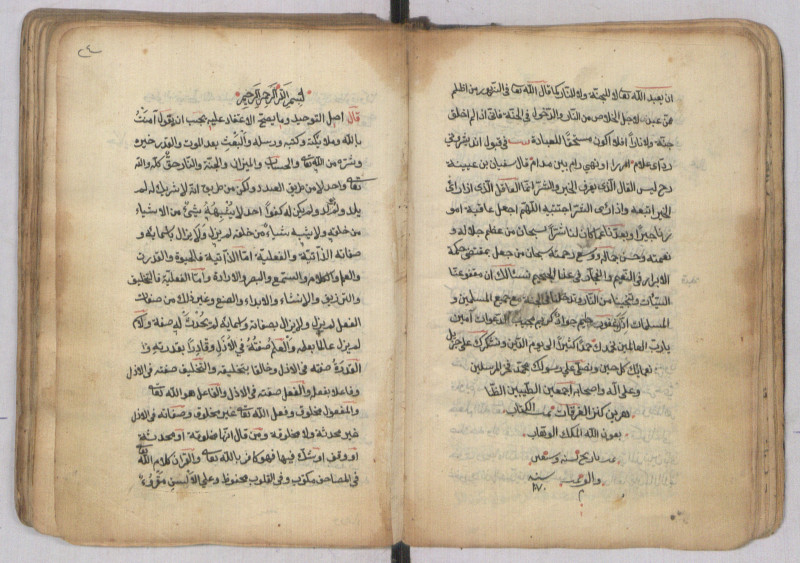 ان يعبد الله تعالى لا للجنة ولا للنار كما قال الله تعالى في الزبور من اظلم
ممن عبدني لاجل الخلاص من النار والدخول في الجنة فلو اني لم اخلق
جنة ولا نارا افلا اكون مستحقا للعبادة
قال سفيان بن عيينة
رح ليس العاقل الذي يعرف الخير والشر انما العاقل الذي اذا رأى
الخير اتبعه واذا رأى الشر اجتنبه اللهم اجعل عاقبة امو
رنا خيرا سبحان من عظم جلاله و
سبحان من جعل
الابرار في النعيم في الجحيم نسئالك ان
السيئات وتنجينا من النار وتدخلنا في الجنة مع جميع المسلمين و
المسلمات انك غفور حليم جواد كريم مجيب الدعوات آمين
يا رب العالمين نحمدك حمدا كثيرا الى يوم الدين ونشكرك على جزيل
نعمائك كل حين ونصلي على رسولك محمد فخر المرسلين
وعلى آله واصحابه اجمعين الطيبين الطا
هرين تمت الكتاب
بعون الله الملك الوهاب
تمت تاريخ سنه
والف سنه
م
بسم الله الرحمن الرحيم
قال اصل التوحيد وما يصح الاعتقاد عليه يجب ان يقول آمنت
بالله وملائكته وكتبه ورسله والبعث بعد الموت والقدر خيره
وشره من الله تعالى والحساب والميزان والجنة والنار حق كله والله
تعالى واحد لا من طريق العدد ولكن من طريق انه لا شريك له لم
يلد ولم يولد ولم يكن له كفوا احد لا يشبه شيئ من الاشياء
من خلقه ولا يشبهه شيئ من خلقه لم يزل ولا يزال باسمائه و
صفاته الذاتية والفعلية اما الذاتية فالحيوة والقدرة
والعلم والكلام والسمع والبصر والارادة واما الفعلية فالتخليق
والترزيق والانشاء والابداع والصنع وغير ذلك من صفات
الفعل لم يزل ولا يزال بصفاته واسمائه لم يحدث له صفة ولا اسم
لم يزل عالما بعلمه والعلم صفته في الازل وقادرا بقدرته و
القدرة صفته في الازل وخالقا بتخليقه والتخليق صفته في الازل
وفاعلا بفعله والفعل صفته في الازل والفاعل هو الله تعالى
والمفعول مخلوق وفعل الله تعالى غير مخلوق وصفاته في الازل
غير محدثة ولا مخلوقة ومن قال انها مخلوقة او محدثة
او وقف او شك فيها فهو كافر بالله تعالى والقرآن كلام الله تعالى
في المصاحف مكتوب وفي القلوب محفوظ وعلى الالسن مقروء